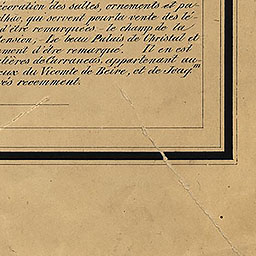 écoration des salles, ornements et pa-
lhao, qui servent pour la vente des te-
d'être remarquées. le champ de la
tension. Le beau Palais de Christal et
ment d'être remarqué. Il en est
lières de Carrancas, appartenant au-
eux du Vicomte de Beire, et de Joaqm
vés recemment.